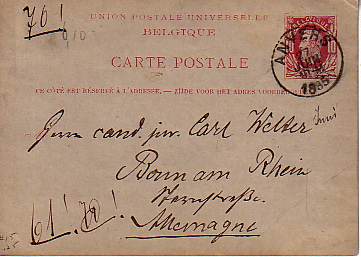 70!
UNION POSTALE UNIVERSELLE
BELGIQUE
BELGIQUE
CARTE POSTALE
ANVERS
CE CÔTÉ EST RÉSERVÉ À L'ADRESSE. — ZIJDE VOOR HET ADRES VOORBEHOUDEN
Herrn cand. jur. Carl Welter
Bonn am Rhein
Sternstraße
Allemagne